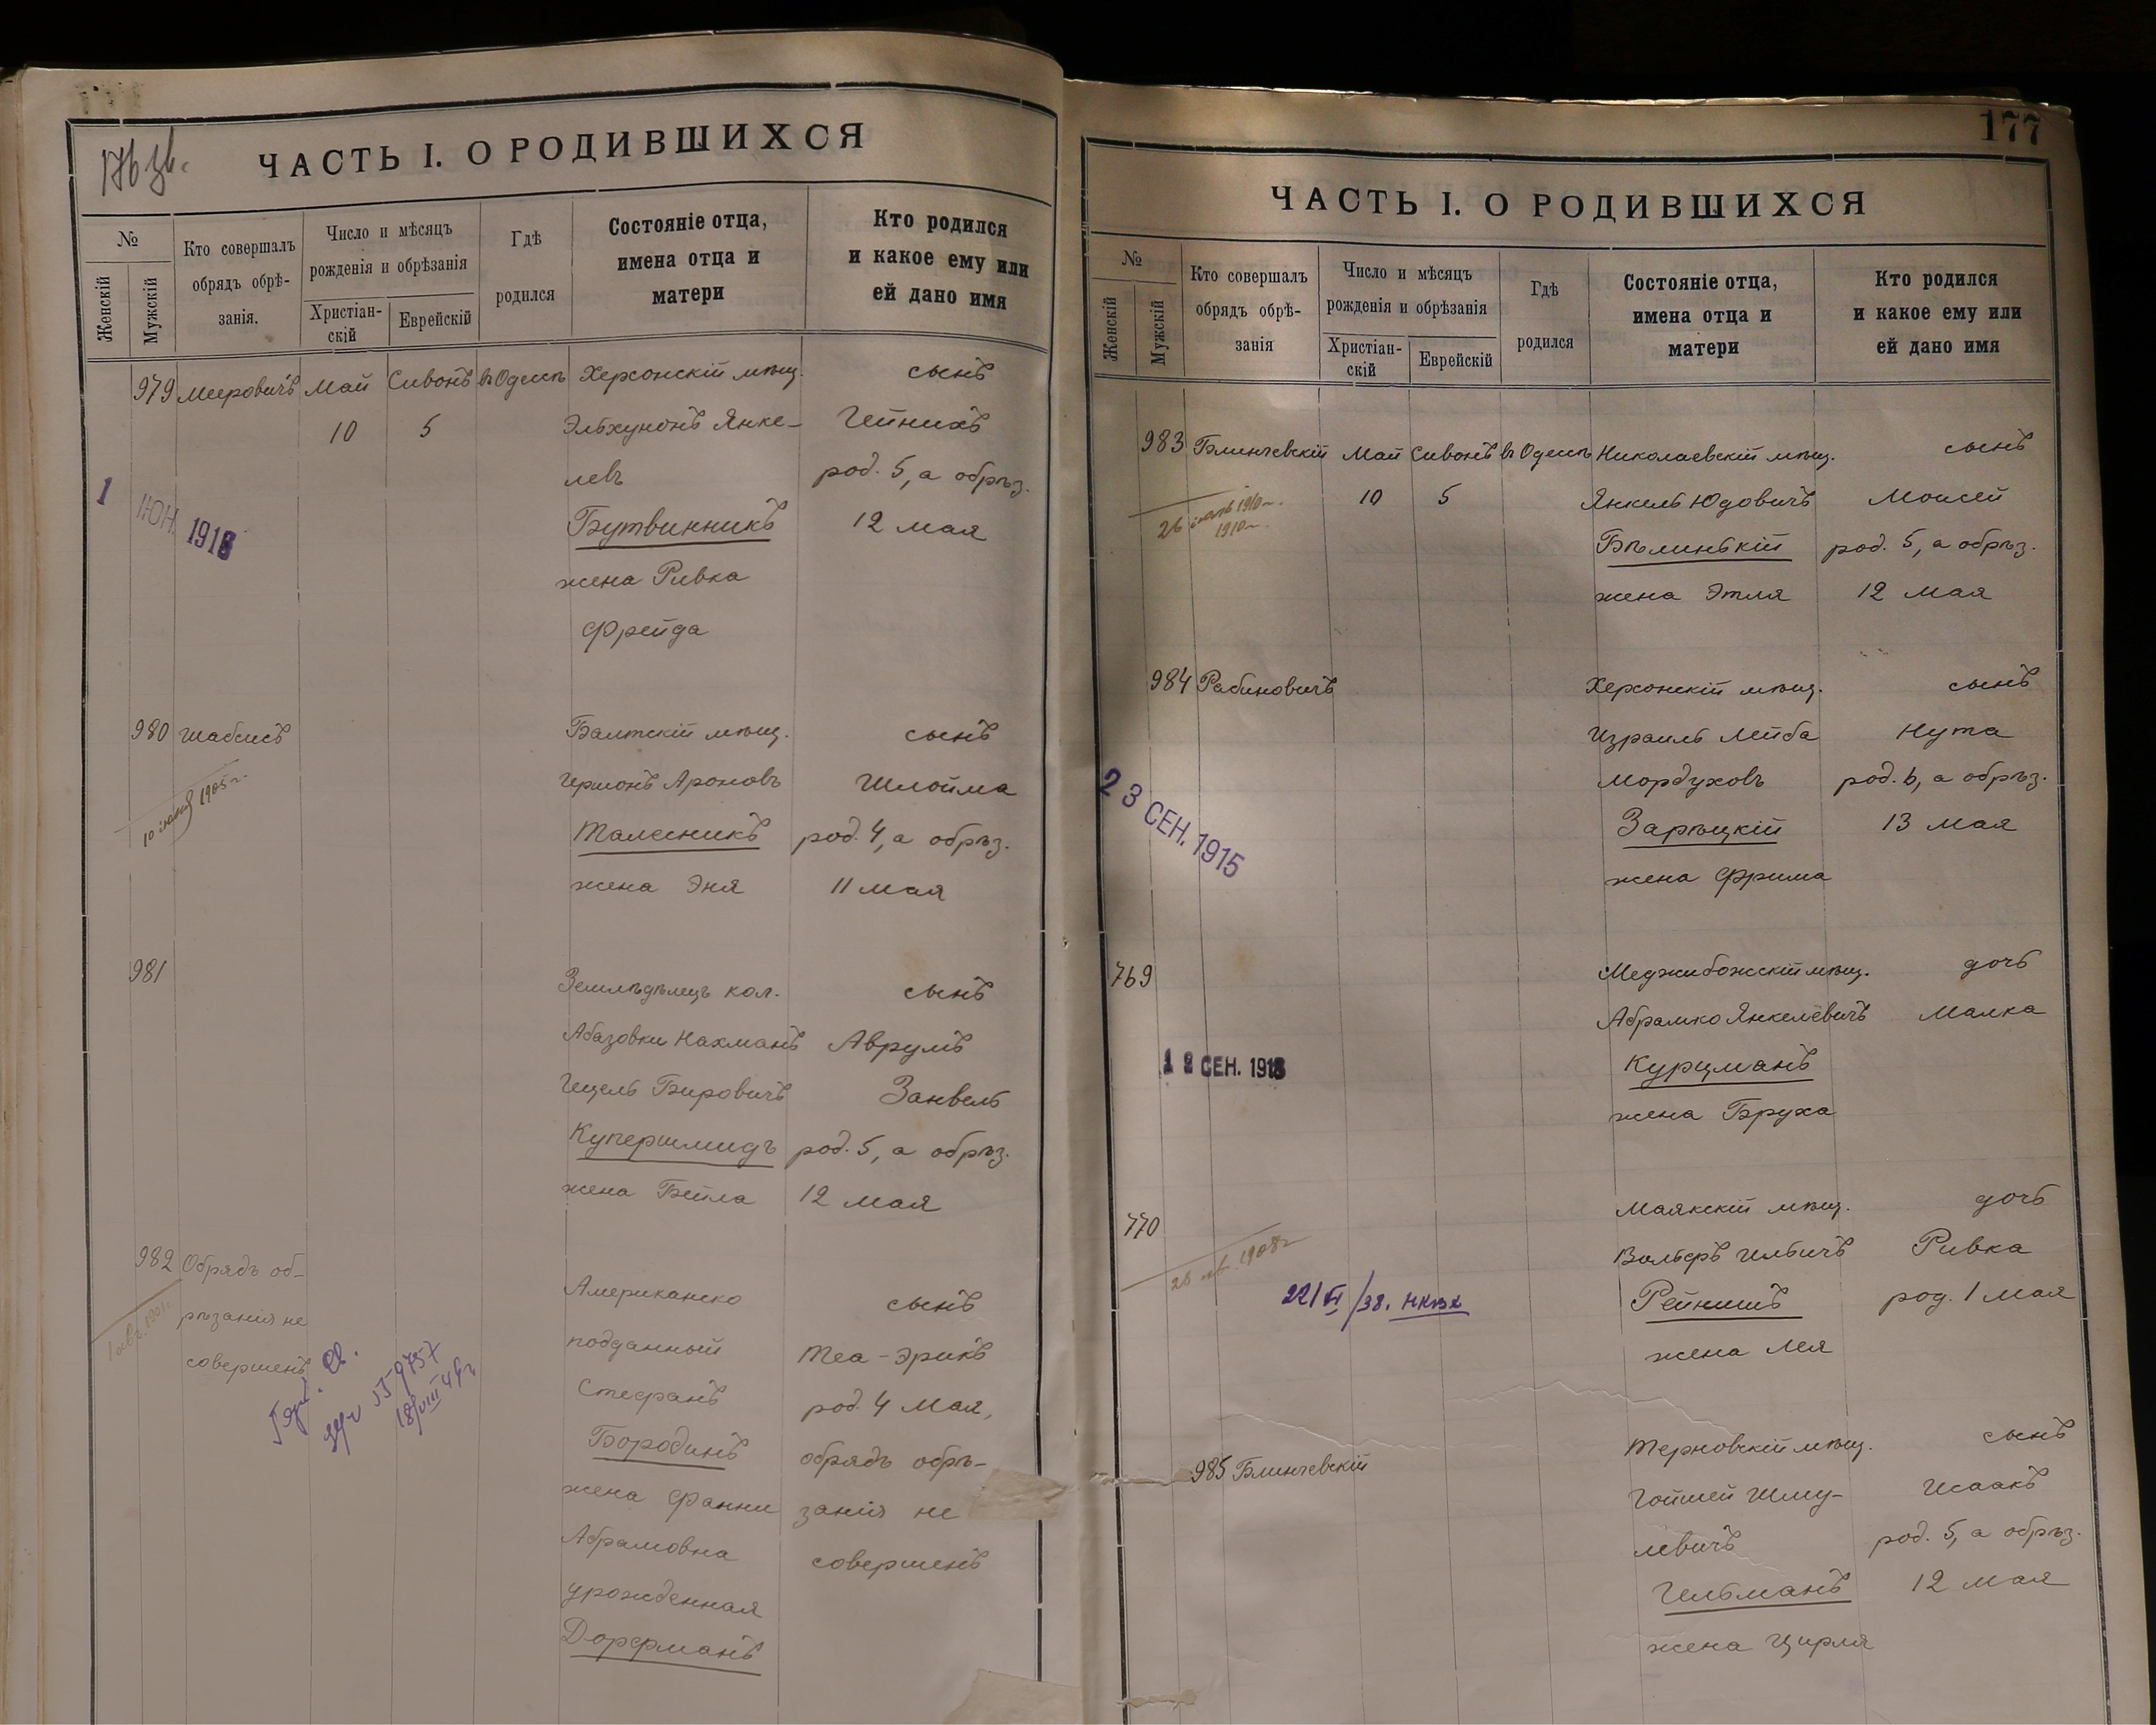 176 зв.
ЧАСТЬ I. О РОДИВШИХСЯ
№
Женскій
Мужскій
Кто совершалъ
обрядъ обрѣ-
занія.
Число и мѣсяцъ
рожденія и обрѣзанія
Христіан-
скій
Еврейскій
Гдѣ
родился
Состояніе отца,
имена отца и
матери
Кто родился
и какое ему или
ей дано имя
979 Мееровичъ Май Сивонъ въ Одессѣ Херсонскій мѣщ. сынъ
10 5 Эльхунонъ Янке- Гейнихъ
левъ род. 5, а обрѣз.
Бутвинникъ 12 мая
жена Ривка
Фрейда
1 ІЮН. 1916
980 Шабсисъ Балтскій мѣщ. сынъ
Гершонъ Ароновъ Шлойма
Талесникъ род. 4, а обрѣз.
жена Эня 11 мая
10 1905 г.
981 Земледѣлецъ кол. сынъ
Абазовки Нахманъ Аврумъ
Гецель Бировичъ Занвель
Купершмидъ род. 5, а обрѣз.
жена Бейла 12 мая
982 Обрядъ об- Американско сынъ
рѣзанія не подданный Теа-Эрикъ
совершенъ Стефанъ род. 4 мая,
Бородинъ обрядъ обрѣ-
жена Фанни занія не
Абрамовна совершенъ
урожденная
Дорфманъ
18/VIII
177
ЧАСТЬ I. О РОДИВШИХСЯ
№
Женскій
Мужскій
Кто совершалъ
обрядъ обрѣ-
занія
Число и мѣсяцъ
рожденія и обрѣзанія
Христіан-
скій
Еврейскій
Гдѣ
родился
Состояніе отца,
имена отца и
матери
Кто родился
и какое ему или
ей дано имя
983 Блинчевскій Май Сивонъ въ Одессѣ Николаевскій мѣщ. сынъ
10 5 Янкель Юдовичъ Моисей
Бѣлинькій род. 5, а обрѣз.
жена Этля 12 мая
26 1910 г.
1910 г.
984 Рабиновичъ Херсонскій мѣщ. сынъ
Израиль Лейба Нута
Мордуховъ род. 6, а обрѣз.
Зарѣцкій 13 мая
жена Фрима
23 СЕН. 1915
769 Меджибожскій мѣщ. дочь
Абрамко Янкелевичъ Малка
Курцманъ
жена Бруха
СЕН. 191
770 Маякскій мѣщ. дочь
Вольфъ Ильичъ Ривка
Рейнишъ род. 1 мая
жена Лея
1908 г.
985 Блинчевскій Терновскій мѣщ. сынъ
Гойшей Шму- Исаакъ
левичъ род. 5, а обрѣз.
Гельманъ 12 мая
жена Цирля